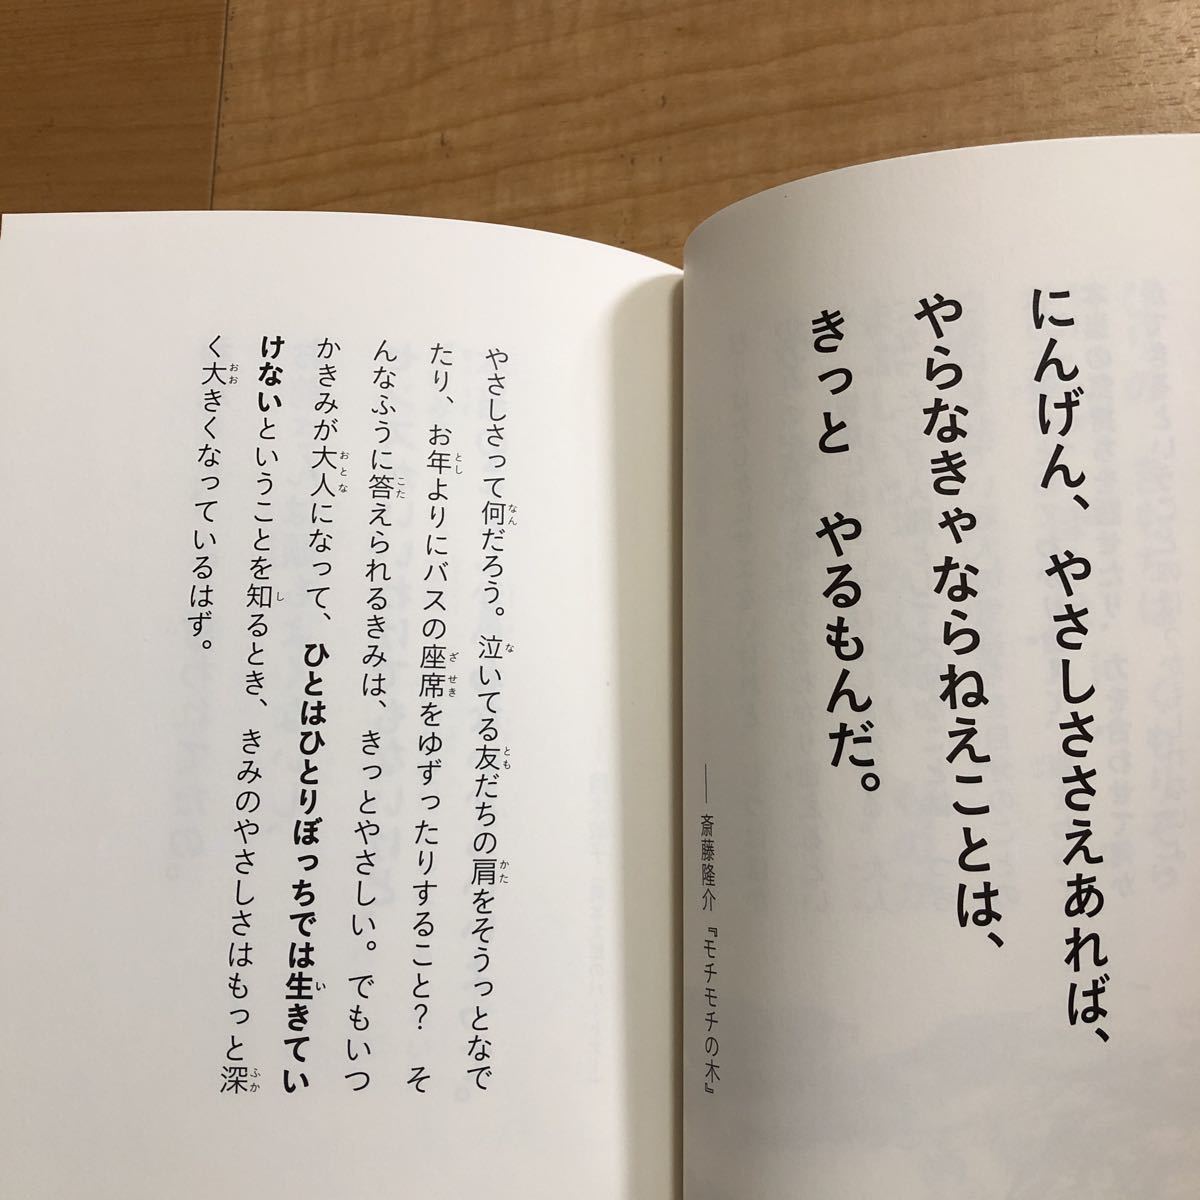 にんげん、やさしささえあれば、
やらなきゃならねえことは、
きっと　やるもんだ。
―― 斎藤隆介『モチモチの木』
やさしさって何だろう。泣いてる友だちの肩をそうっとなで
たり、お年よりにバスの座席をゆずったりすること？　そ
んなふうに答えられるきみは、きっとやさしい。でもいつ
かきみが大人になって、ひとはひとりぼっちでは生きてい
けないということを知るとき、きみのやさしさはもっと深
く大きくなっているはず。